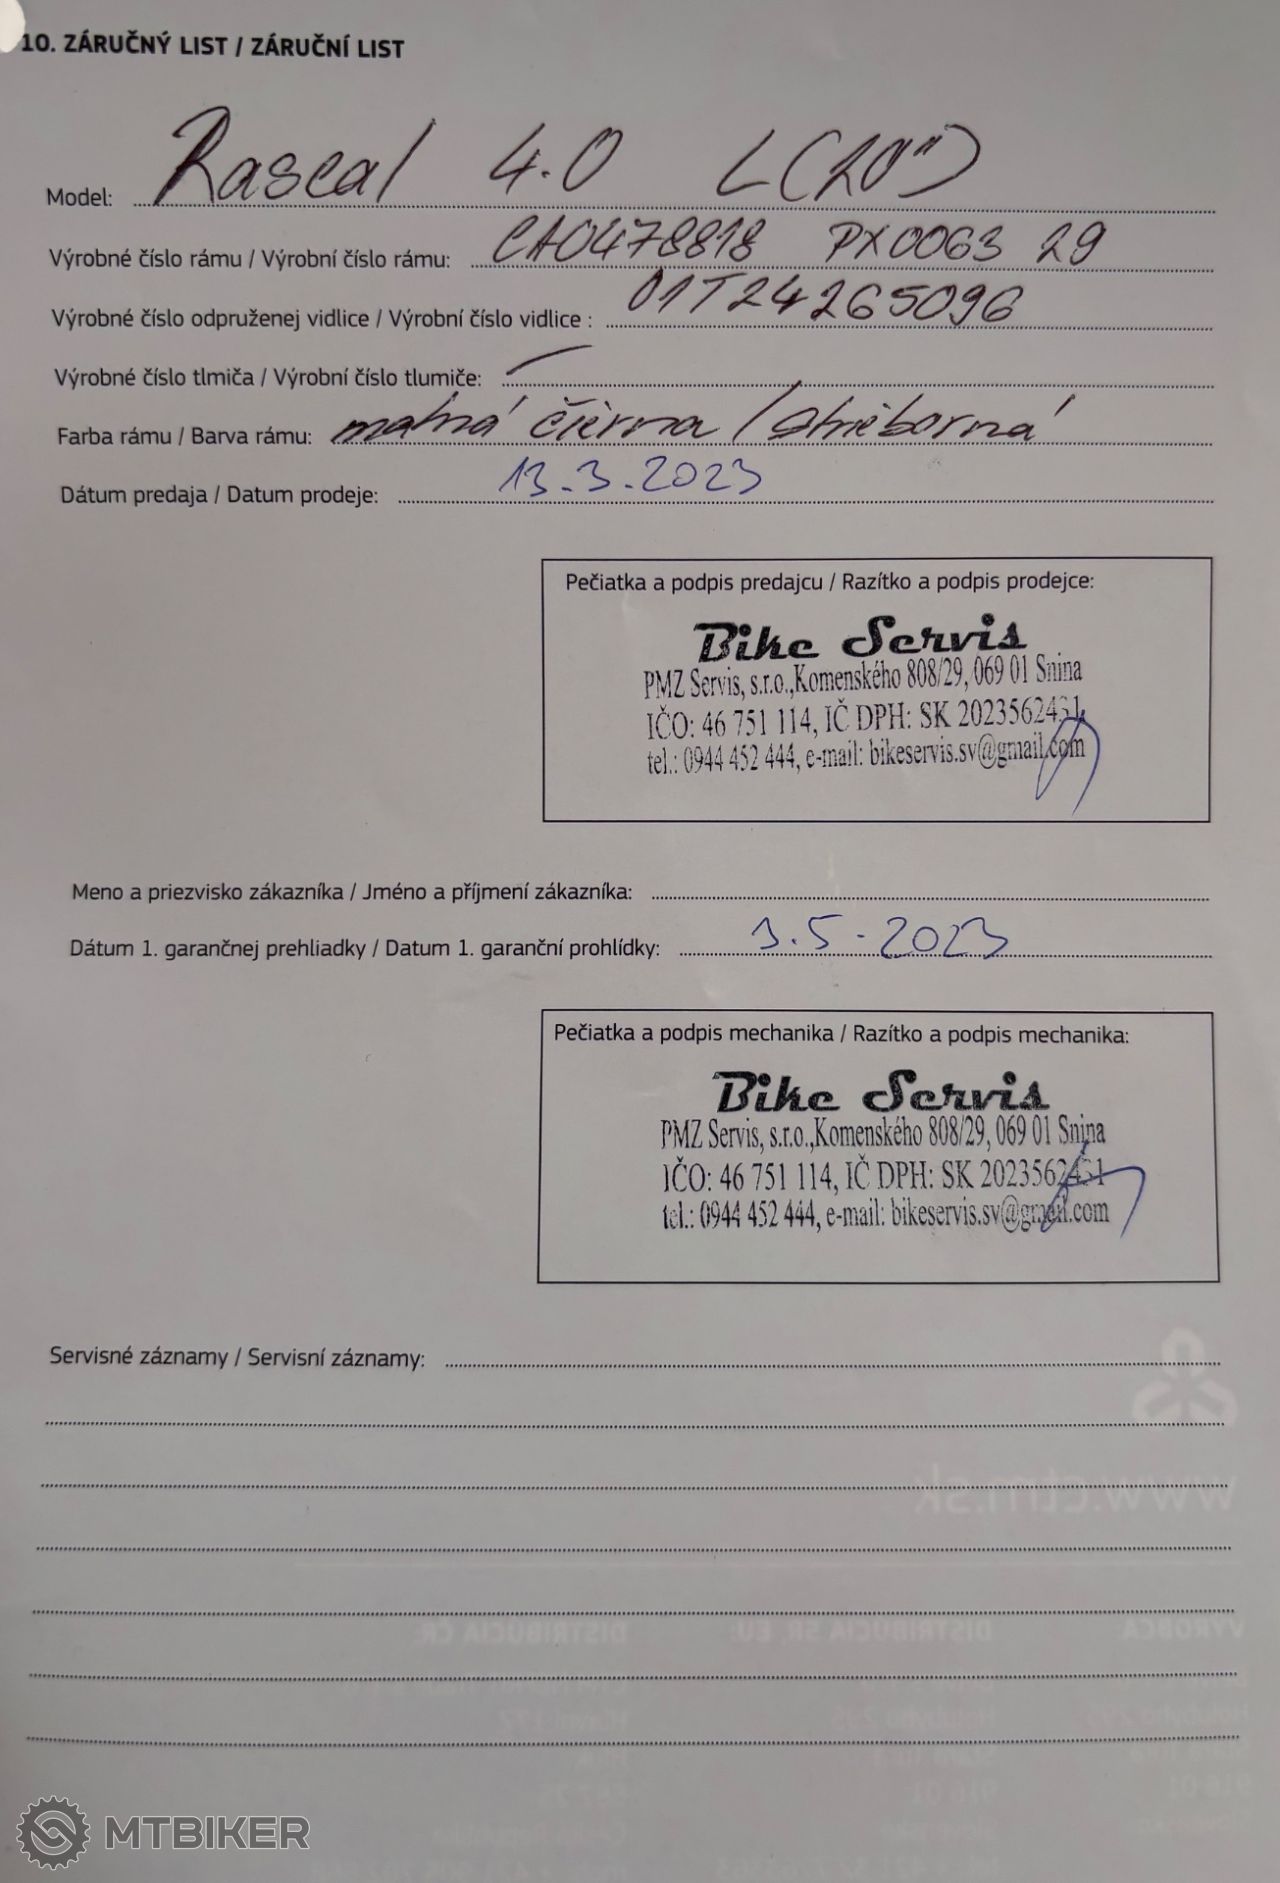 10. ZÁRUČNÝ LIST / ZÁRUČNÍ LIST
Model: Rascal 4.0 L (20")
Výrobné číslo rámu / Výrobní číslo rámu: CA0478818 PX0063 29
Výrobné číslo odpruženej vidlice / Výrobní číslo vidlice : 01T24265096
Výrobné číslo tlmiča / Výrobní číslo tlumiče:
Farba rámu / Barva rámu: matná čierna / strieborná
Dátum predaja / Datum prodeje: 13.3.2023
Pečiatka a podpis predajcu / Razítko a podpis prodejce:
Bike Servis
PMZ Servis, s.r.o.,Komenského 808/29, 069 01 Snina
IČO: 46 751 114, IČ DPH: SK 2023562431
tel.: 0944 452 444, e-mail: bikeservis.sv@gmail.com
Meno a priezvisko zákazníka / Jméno a příjmení zákazníka:
Dátum 1. garančnej prehliadky / Datum 1. garanční prohlídky: 3.5.2023
Pečiatka a podpis mechanika / Razítko a podpis mechanika:
Bike Servis
PMZ Servis, s.r.o.,Komenského 808/29, 069 01 Snina
IČO: 46 751 114, IČ DPH: SK 2023562431
tel.: 0944 452 444, e-mail: bikeservis.sv@gmail.com
Servisné záznamy / Servisní záznamy:
www.ctm.sk
VÝROBCA DISTRIBÚCIA SR, EÚ: DISTRIBÚCIA ČR:
MTBIKER